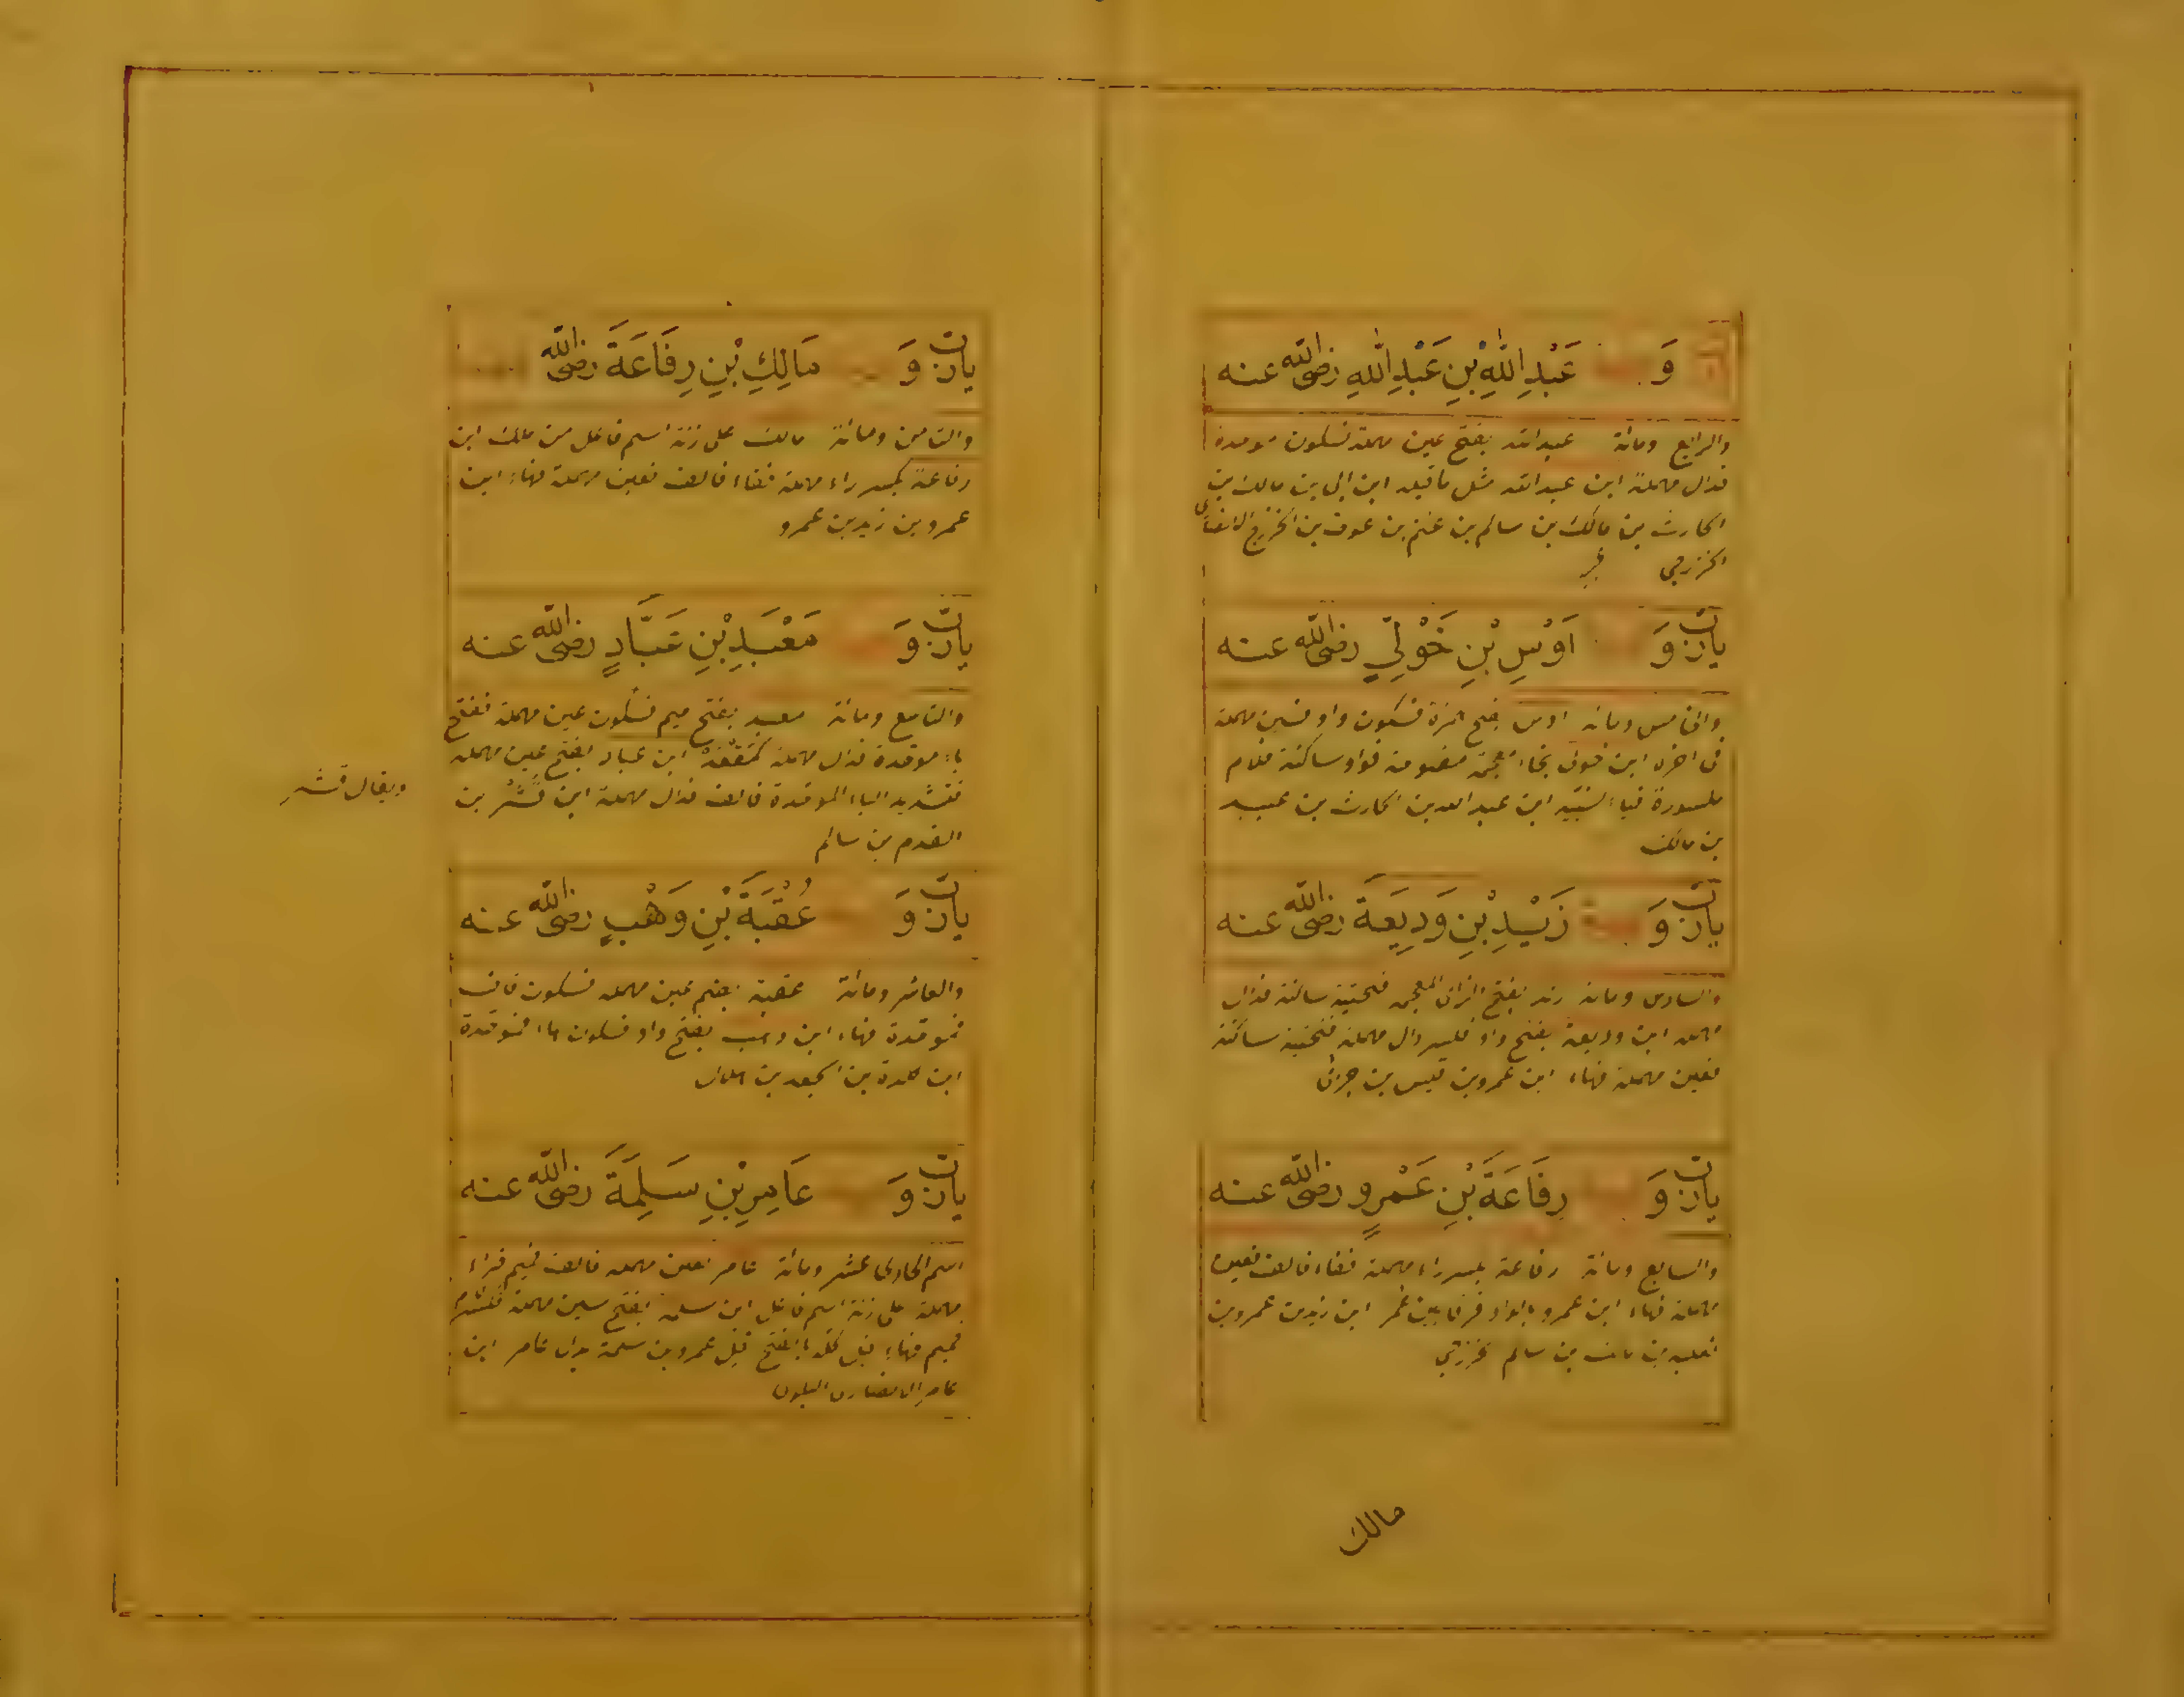 وَ عَبْدِ اللّٰهِ بْنِ عَبْدِ اللّٰهِ رضى الله عنه
والرابع ومائة عبد الله بفتح عين مهملة فسكون موحدة
فدال مهملة ابن عبد الله مثل ما قبله ابن ابي بن مالك بن
الحارث بن مالك بن سالم بن غنم بن عوف بن الخزرج الانصاري
الخزرجي
وَ اَوْسِ بْنِ خَوْلِيٍّ رضى الله عنه
والخامس ومائه اوس بفتح همزة فسكون واو فسين مهملة
في اخره ابن خولي بخاء معجمة مفتوحة فواو ساكنة فلام
مكسورة فياء النسبة ابن عبد الله بن الحارث بن عبيد
بن مالك
وَ زَيْدِ بْنِ وَدِيعَةَ رضى الله عنه
والسادس ومائه زيد بفتح الزاى المعجمه فتحتية ساكنة فدال
مهمله ابن وديعة بفتح واو فكسر دال مهملة فتحتية ساكنة
فعين مهملة فهاء ابن عمرو بن قيس بن
وَ رِفَاعَةَ بْنِ عَمْرٍو رضى الله عنه
والسابع ومائة رفاعة بكسر راء مهملة ففاء فالف فعين
مهملة فهاء ابن عمرو بالواو فرقا بين عمر ابن زيد بن عمرو بن
ثعلبه بن مالك بن سالم خزرجي
مالك
وَ مَالِكِ بْنِ رِفَاعَةَ رضى الله
والثامن ومائة مالك على زنة اسم فاعل من ملك ابن
رفاعة بكسر راء مهملة ففاء فالف فعين مهملة فهاء ابن
عمرو بن زيد بن عمرو
وَ مَعْبَدِ بْنِ عَبَّادٍ رضى الله عنه
والتاسع ومائة معبد بفتح ميم فسكون عين مهملة ففتح
باء موحدة فدال مهملة ابن عباد بفتح عين مهملة
فتشديد الباء الموحدة فالف فدال مهملة ابن قشر بن
القدم بن سالم
ويقال قشر
وَ عُقْبَةَ بْنِ وَهْبٍ رضى الله عنه
والعاشر ومائة عقبة بضم عين مهمله فسكون قاف
فموحدة فهاء ابن وهب بفتح واو فسكون هاء فموحدة
ابن كلدة بن الجعد بن هلال
وَ عَامِرِ بْنِ سَلِمَةَ رضى الله عنه
اسم الحادى عشر ومائة عامر بعين مهمله فالف فميم فراء
مهملة على زنة اسم فاعل ابن سلمه بفتح سين مهملة فكسر لام
فميم فهاء بفتح قيل عمرو بن سلمة بدل عامر ابن
عامر الانصارى البلوى